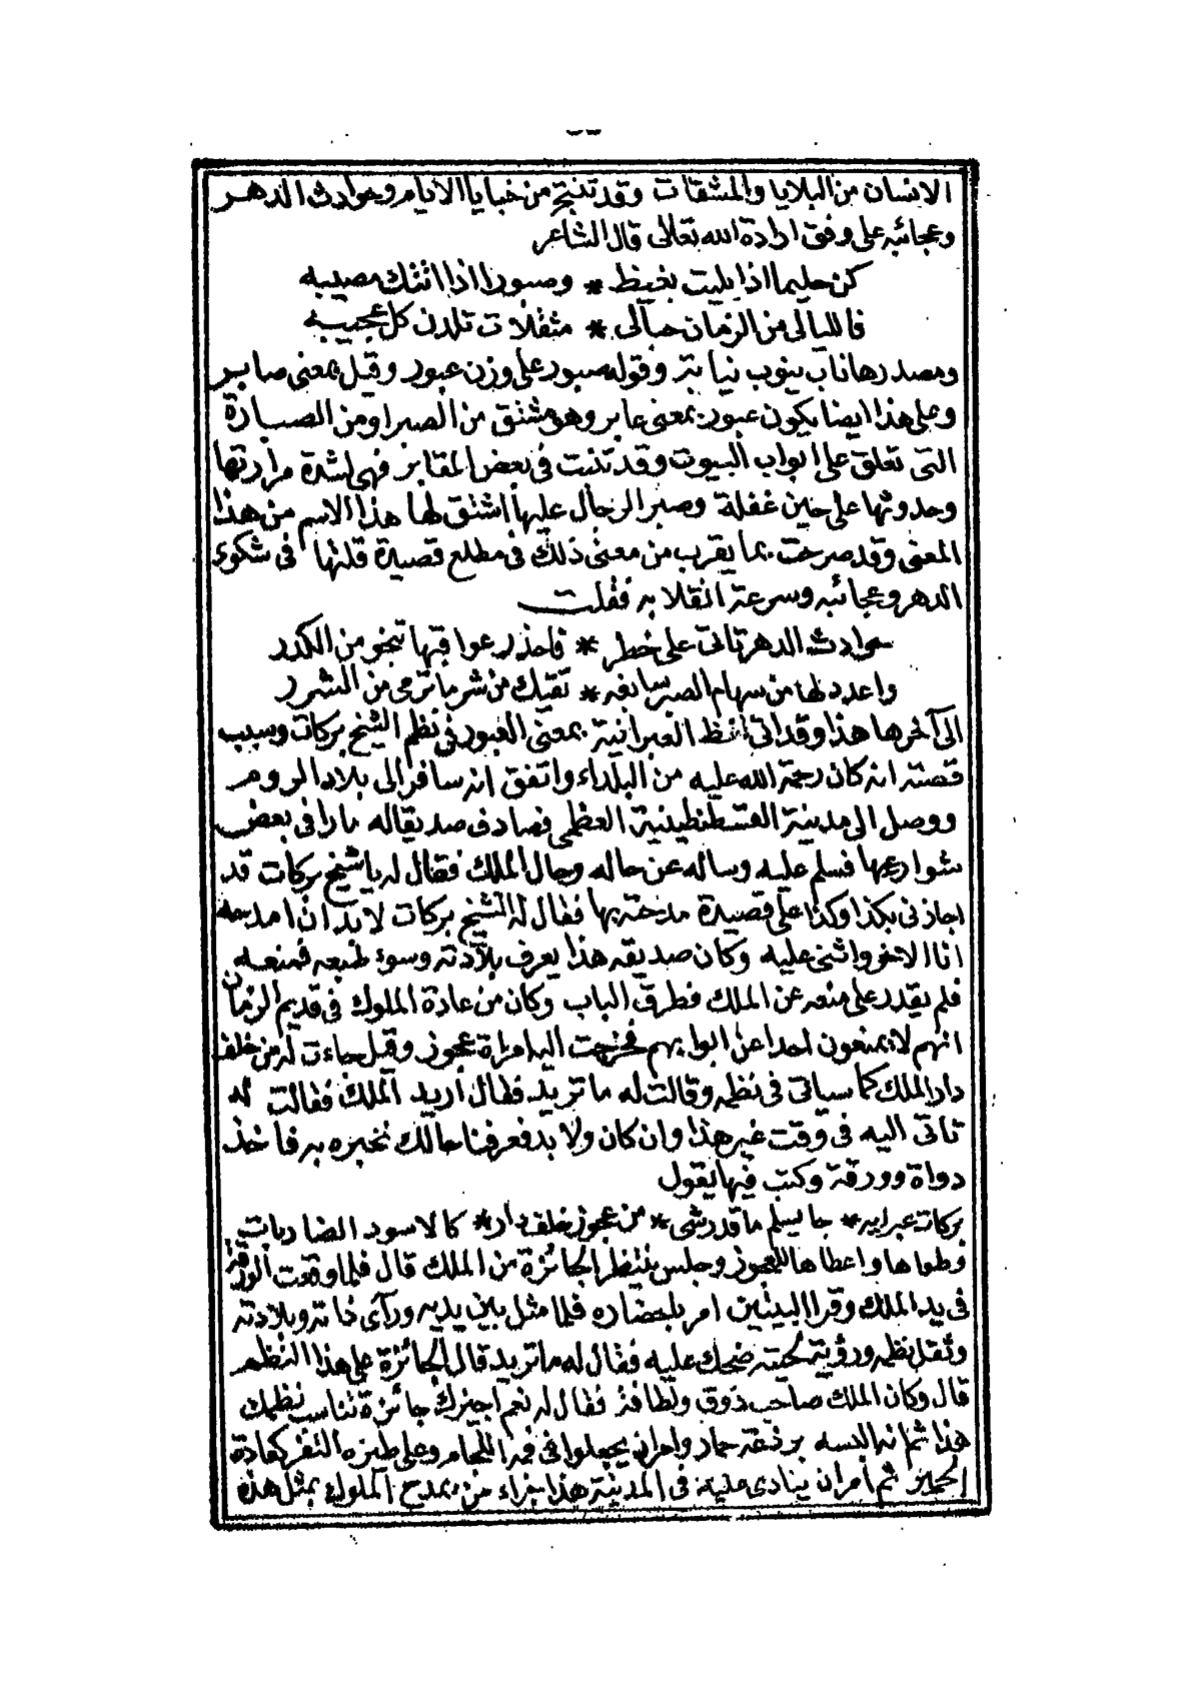 الانسان من البلايا والمشقات وقد تنتج من خبايا الايام وحوادث الدهر
وعجائبه على وفق ارادة الله تعالى قال الشاعر
كن حليما اذا بليت بغيظ * وصبورا اذا اتتك مصيبه
فالليالى من الزمان حبالى * مثقلات تلدن كل عجيبه
ومصدرها ناب ينوب نيابتر وقوله صبور على وزن عبور وقيل بمعنى صابر
وعلى هذا ايضا يكون عبور بمعنى عابر وهو مشتق من الصبر او من الصبارة
التى تعلق على ابواب البيوت وقد تنبت فى بعض المقابر فهى لشدة مرارتها
وحدوثها على حين غفلة وصبر الرجال عليها اشتق لها هذا الاسم من هذا
المعنى وقد صرحت بما يقرب من معنى ذلك فى مطلع قصيدة قلتها فى شكوى
الدهر وعجائبه وسرعة انقلابه فقلت
حوادث الدهر تاتى على خطر * فاحذر عواقبها تنجو من الكدر
واعدد لها من سهام الصبر سابغه * تقيك من شر ما ترمى من الشرر
الى آخرها هذا وقد اتى لفظ العبرانية بمعنى العبور فى نظم الشيخ بركات وسبب
قصته انه كان رحمة الله عليه من البلداء واتفق انه سافر الى بلاد الروم
ووصل الى مدينة القسطنطينية العظمى فصادف صديقاله مارا فى بعض
شوارعها فسلم عليه وساله عن حاله وحال الملك فقال له يا شيخ بركات قد
اجازنى بكذا وكذا على قصيدة مدحته بها فقال له الشيخ بركات لابد ان امدحه
انا الاخر واثنى عليه وكان صديقه هذا يعرف بلادته وسوء طبعه فمنعه
فلم يقدر على منعه عن الملك فطرق الباب وكان من عادة الملوك فى قديم الزمان
انهم لا يمنعون احدا عن ابوابهم فخرجت اليه امراة عجوز وقيل جاءت له من خلف
دار الملك كما سياتى فى نظمه وقالت له ما تريد فقال أريد الملك فقالت له
تاتى اليه فى وقت غير هذا وان كان ولا بد فعرفنا حالك نخبره به فاخذ
دواة وورقة وكتب فيها يقول
بركات عبرانيه * جا يسلم ما قدرشى * من عجوز خلف دار * كالاسود الضاريات
وطواها واعطاها للعجوز وجلس ينتظر الجائزة من الملك قال فلما وقعت الورقة
فى يد الملك وقرا البيتين امر باحضاره فلما مثل بين يديه ورآى ذاته وبلادته
وثقل نظمه ورؤية لحيته ضحك عليه فقال له ما تريد قال الجائزة على هذا النظم
قال وكان الملك صاحب ذوق ولطافة فقال له نعم اجيزك جائزة تناسب نظمك
هذا ثم انه البسه برذعة حمار وامر ان يجعلوا فى فمه اللجام وعلى طيزه التفر كعادة
الحمير ثم أمر ان ينادى عليه فى المدينة هذا جزاء من يمدح الملوك بمثل هذه